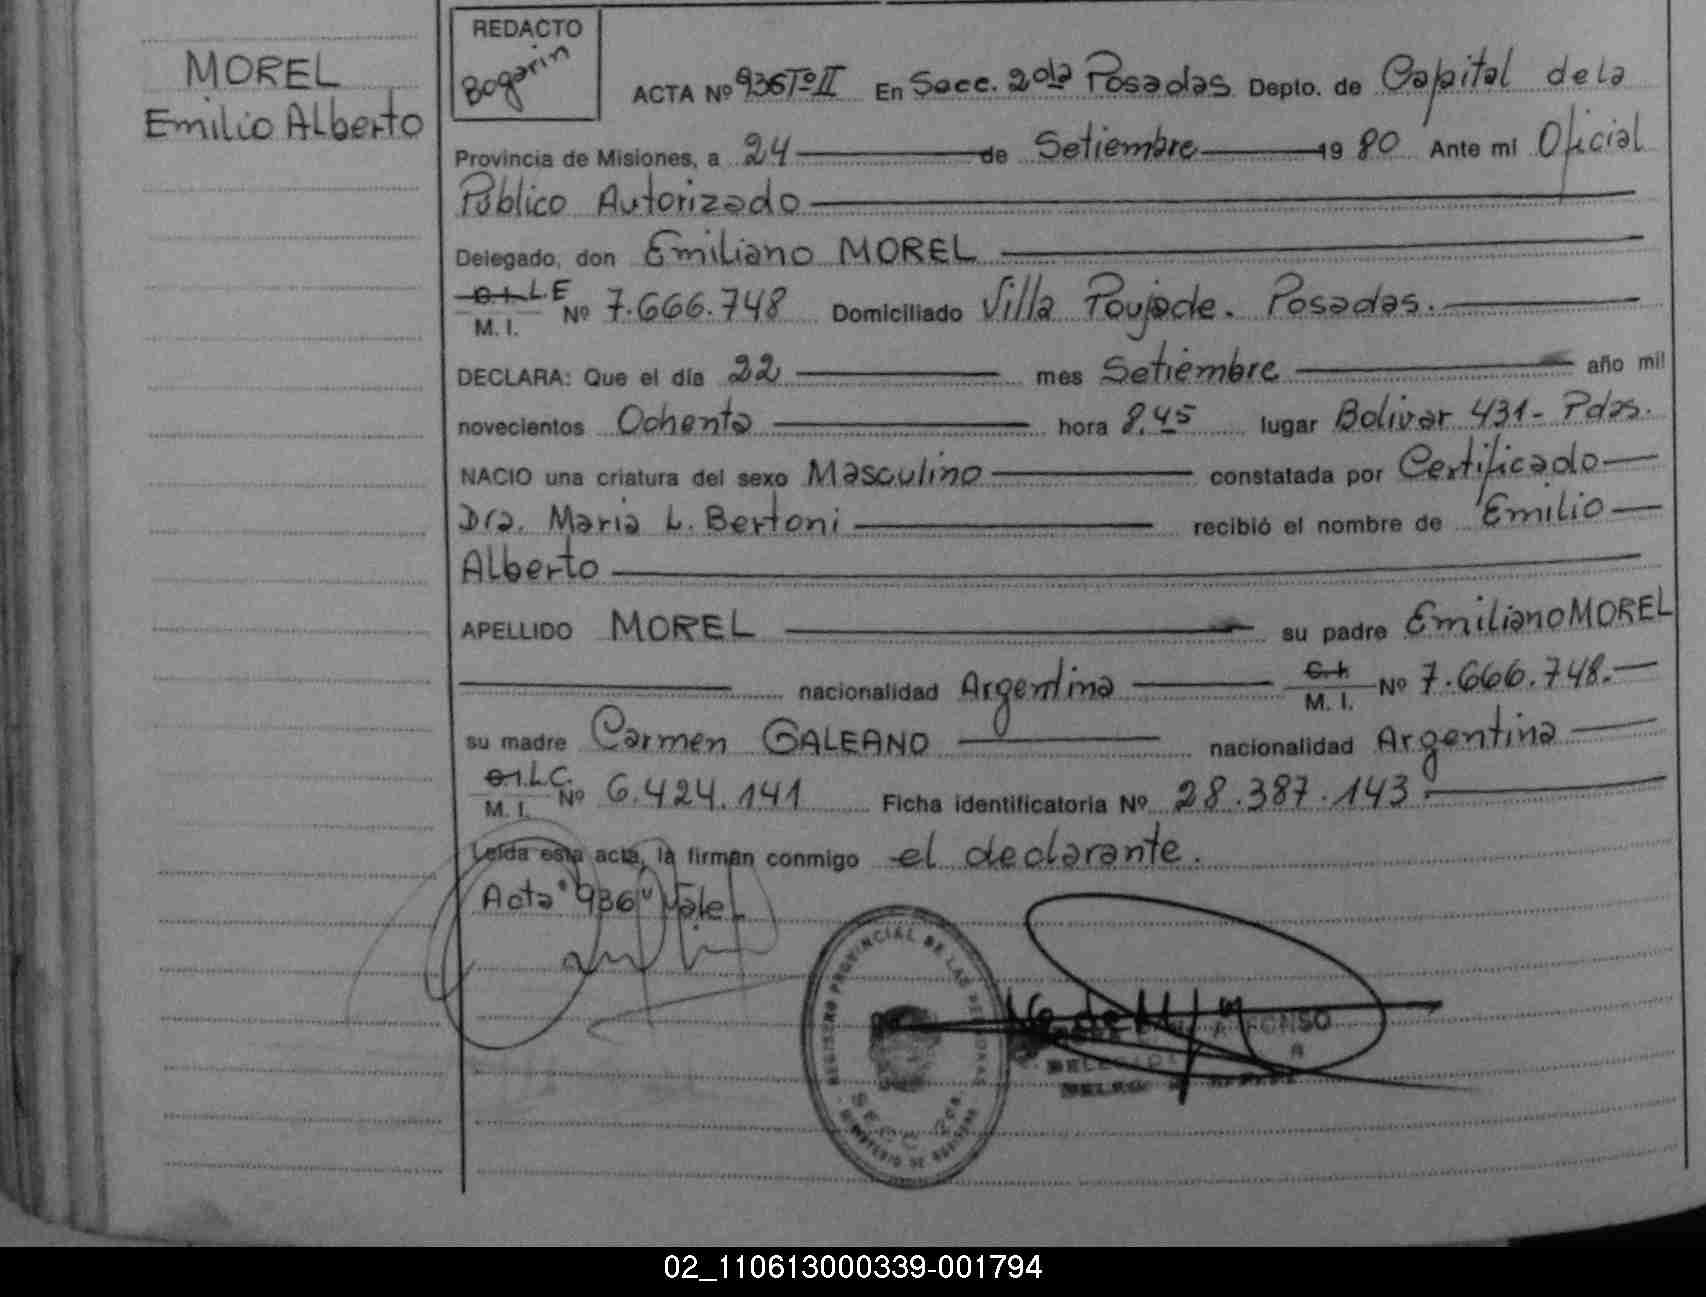 MOREL
Emilio Alberto
REDACTO
Bogarin
ACTA Nº 936 Tº II En Secc. 2da Posadas Depto. de Capital de la
Provincia de Misiones, a 24 de Setiembre 19 80 Ante mi Oficial
Público Autorizado
Delegado, don Emiliano MOREL
C.I. L.E
M. I. Nº 7.666.748 Domiciliado Villa Poujade. Posadas.
DECLARA: Que el día 22 mes Setiembre año mil
novecientos Ochenta hora 8.45 lugar Bolivar 431- Pdas.
NACIO una criatura del sexo Masculino constatada por Certificado
Dra. Maria L. Bertoni recibió el nombre de Emilio
Alberto
APELLIDO MOREL su padre Emiliano MOREL
nacionalidad Argentina C.I. M. I. Nº 7.666.748.
su madre Carmen GALEANO nacionalidad Argentina
C.I. L.C.
M. I. Nº 6.424.141 Ficha identificatoria Nº 28.387.143
Leída esta acta, la firman conmigo el declarante.
Acta "936" Vale
REGISTRO PROVINCIAL DE LAS PERSONAS
SECC. 2da.
MINISTERIO DE GOBIERNO
02_110613000339-001794